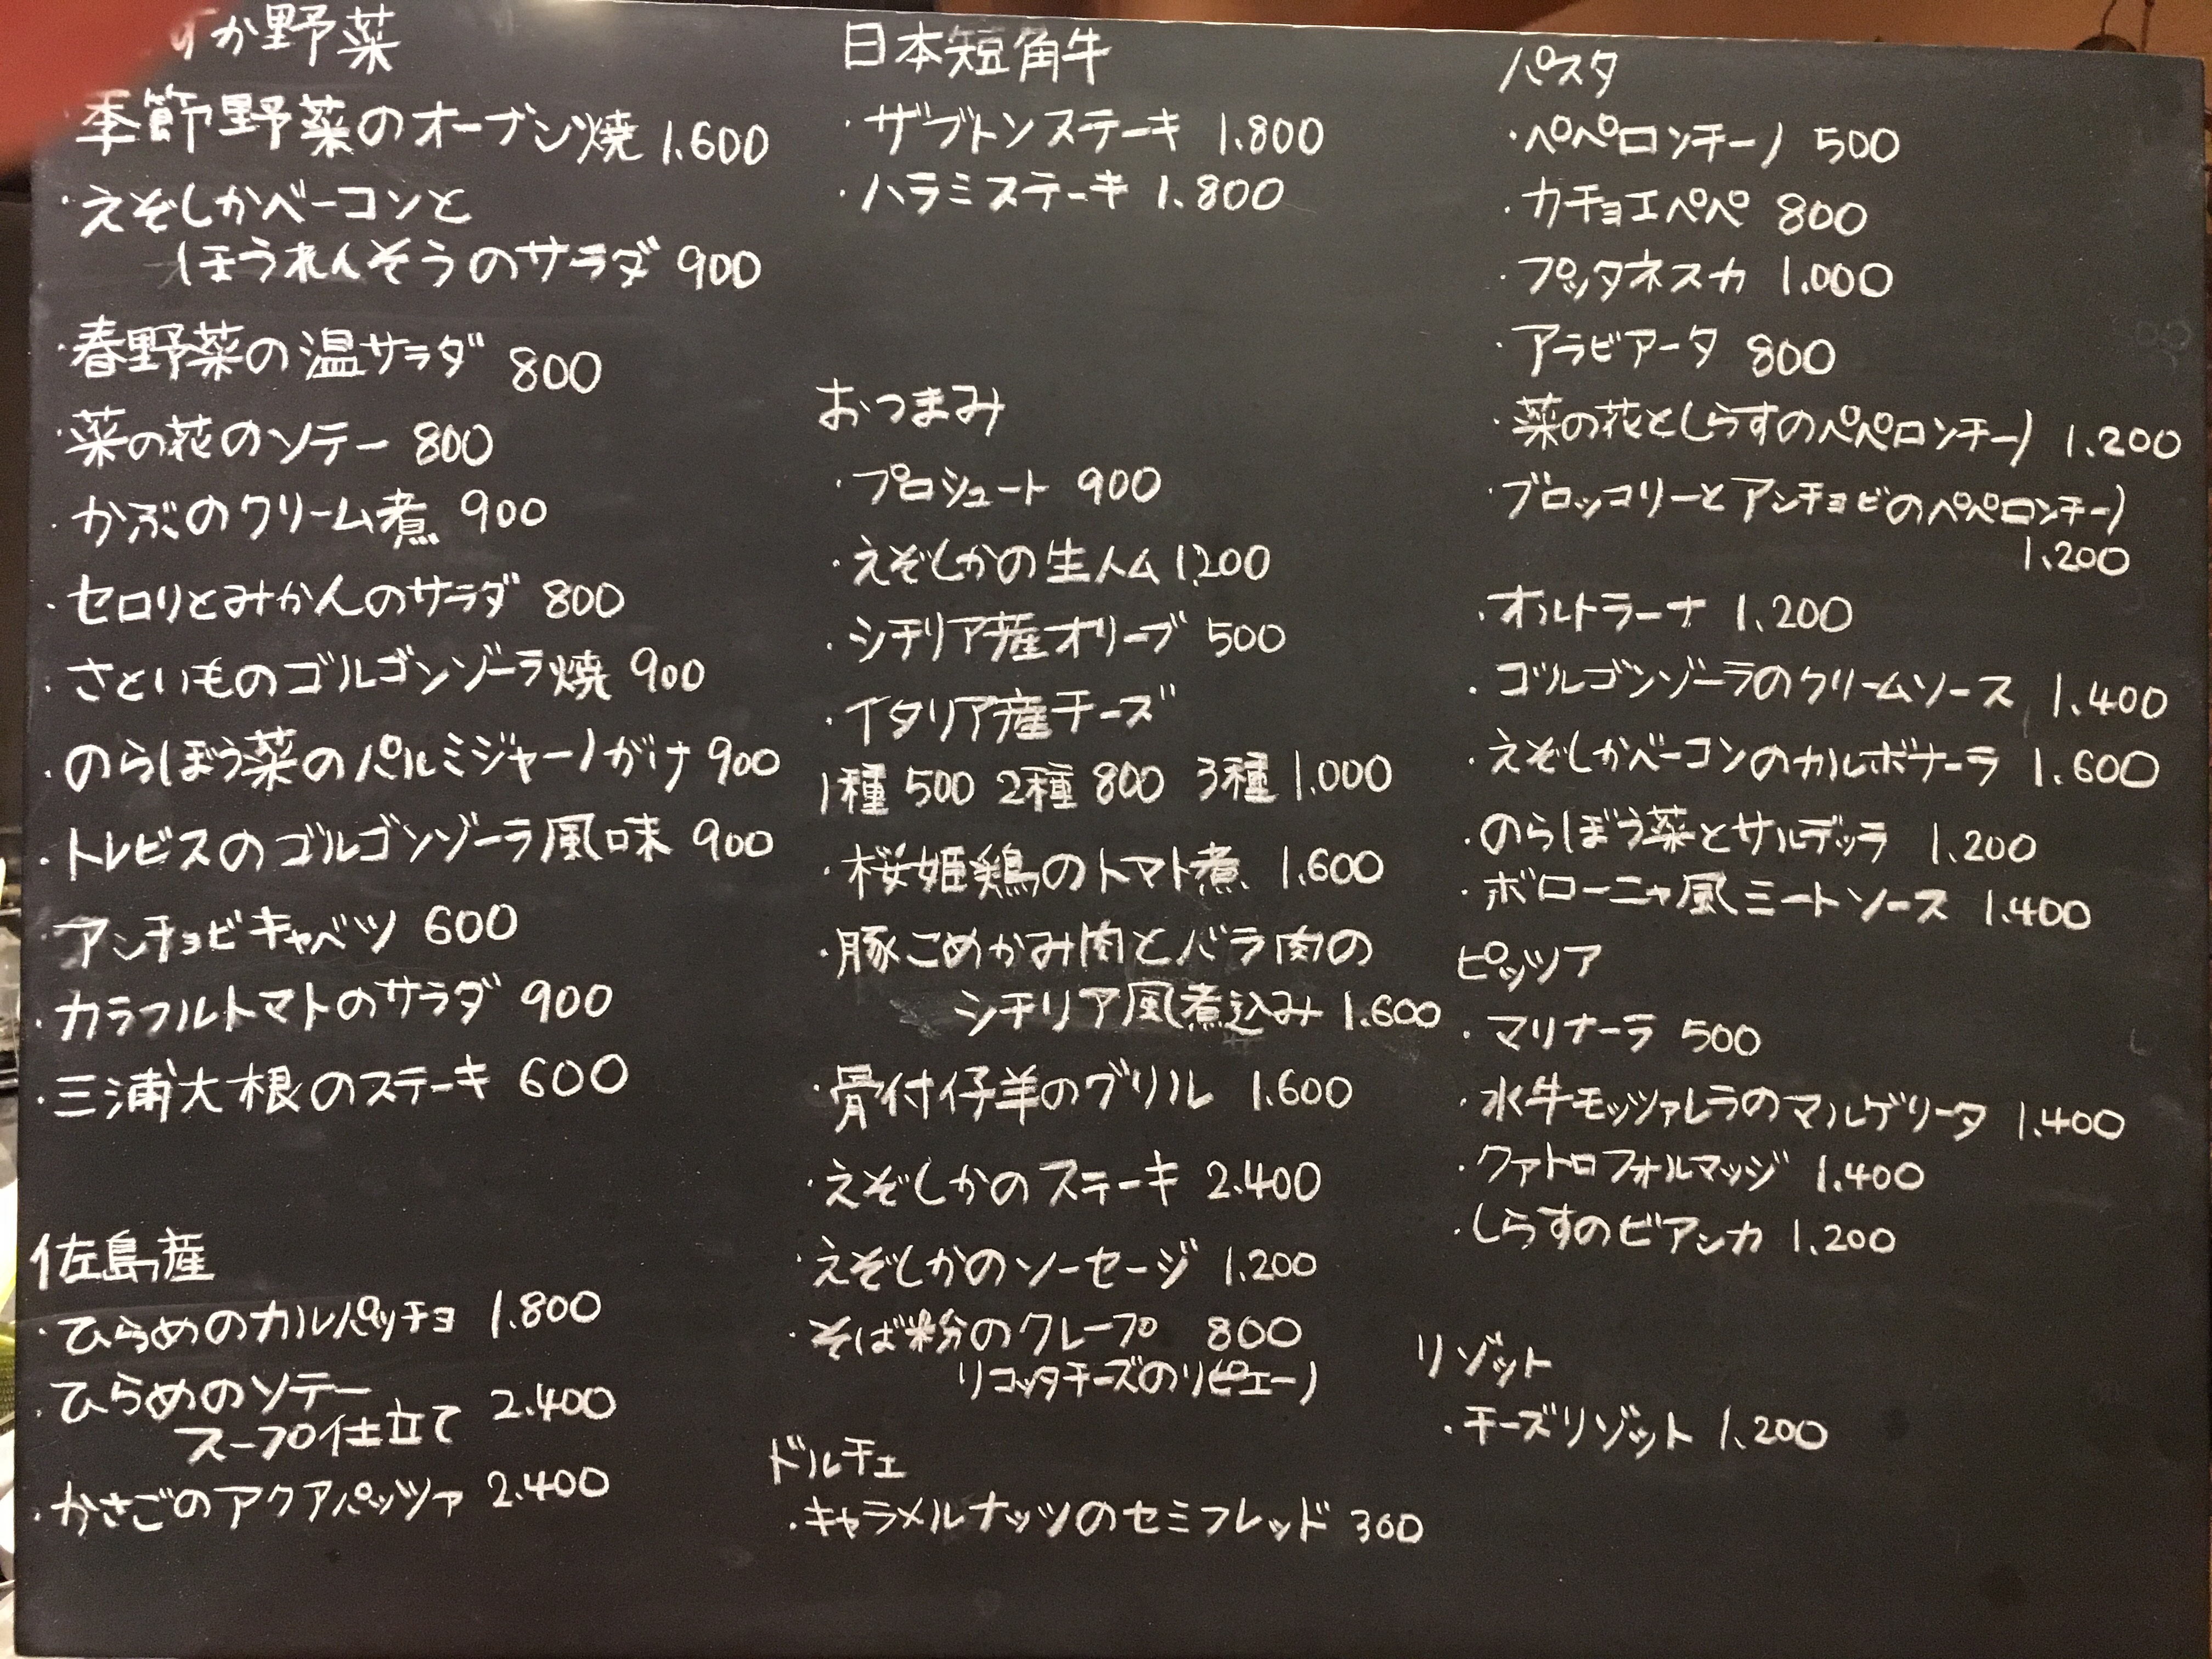 すか野菜
・季節野菜のオーブン焼 1.600
・えぞしかベーコンと
ほうれんそうのサラダ 900
・春野菜の温サラダ 800
・菜の花のソテー 800
・かぶのクリーム煮 900
・セロリとみかんのサラダ 800
・さといものゴルゴンゾーラ焼 900
・のらぼう菜のパルミジャーノがけ 900
・トレビスのゴルゴンゾーラ風味 900
・アンチョビキャベツ 600
・カラフルトマトのサラダ 900
・三浦大根のステーキ 600
佐島産
・ひらめのカルパッチョ 1.800
・ひらめのソテー
スープ仕立て 2.400
・かさごのアクアパッツァ 2.400
日本短角牛
・ザブトンステーキ 1.800
・ハラミステーキ 1.800
おつまみ
・プロシュート 900
・えぞしかの生ハム 1200
・シチリア産オリーブ 500
・イタリア産チーズ
1種 500 2種 800 3種 1.000
・桜姫鶏のトマト煮 1.600
・豚こめかみ肉とバラ肉の
シチリア風煮込み 1.600
・骨付仔羊のグリル 1.600
・えぞしかのステーキ 2.400
・えぞしかのソーセージ 1.200
・そば粉のクレープ 800
リコッタチーズのリピエーノ
ドルチェ
・キャラメルナッツのセミフレッド 300
パスタ
・ペペロンチーノ 500
・カチョエペペ 800
・プッタネスカ 1.000
・アラビアータ 800
・菜の花としらすのペペロンチーノ 1.200
・ブロッコリーとアンチョビのペペロンチーノ
1.200
・オルトラーナ 1.200
・ゴルゴンゾーラのクリームソース 1.400
・えぞしかベーコンのカルボナーラ 1.600
・のらぼう菜とサルデッラ 1.200
・ボローニャ風ミートソース 1.400
ピッツア
・マリナーラ 500
・水牛モッツァレラのマルゲリータ 1.400
・クァトロフォルマッジ 1.400
・しらすのビアンカ 1.200
リゾット
・チーズリゾット 1.200